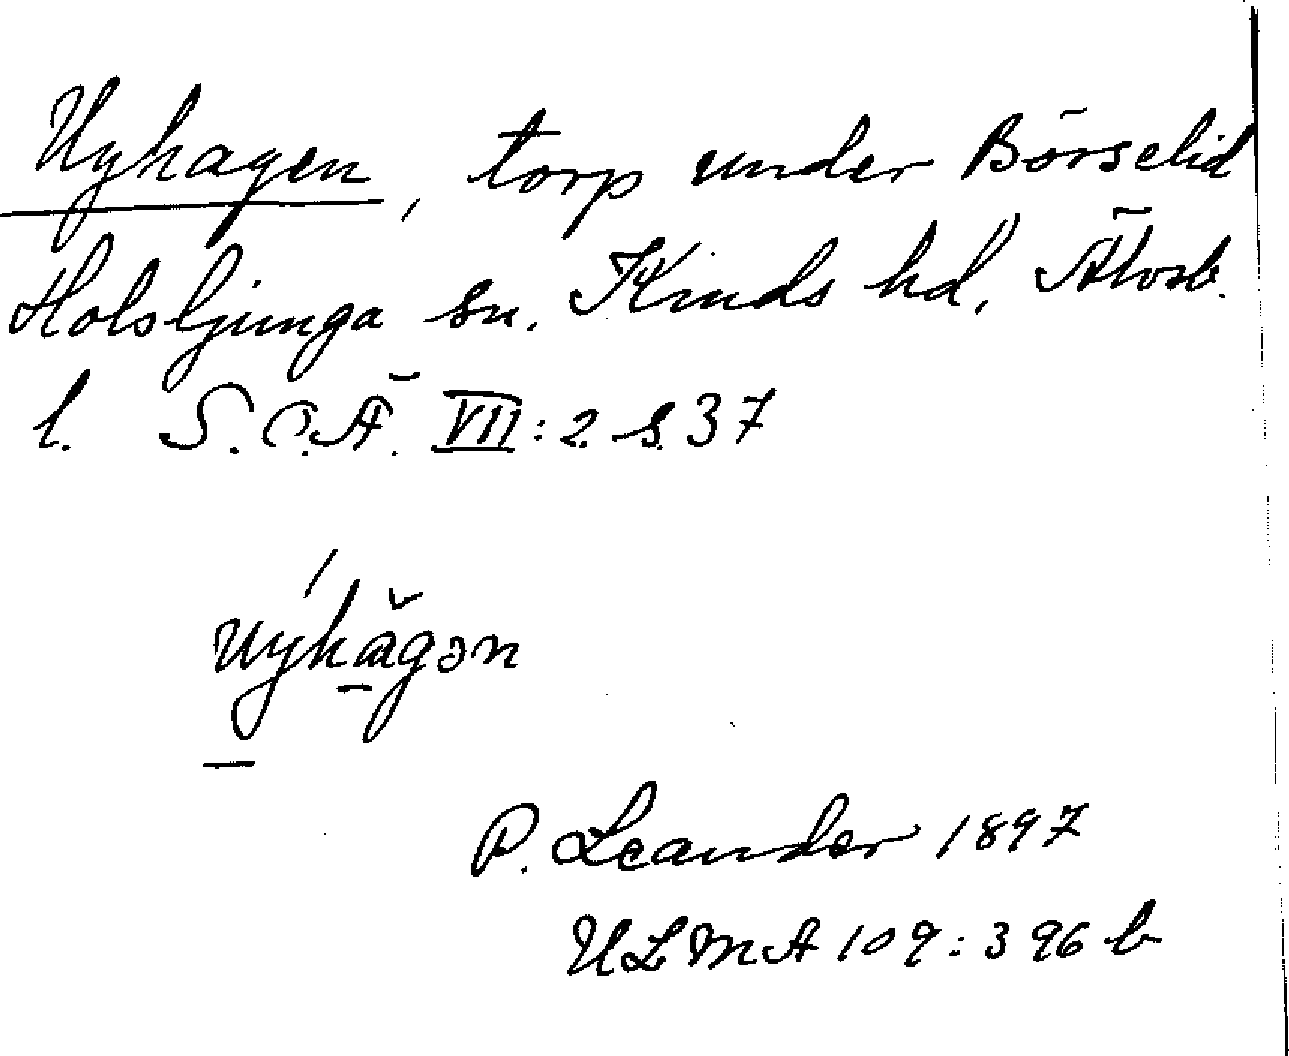 Nyhagen, torp under Börselid
Holsljunga sn. Kinds hd, Älvsb.
l. S.O.Ä. VII:2 s. 37
nýhăgən
P. Leander 1897
ULMA 109:396 b